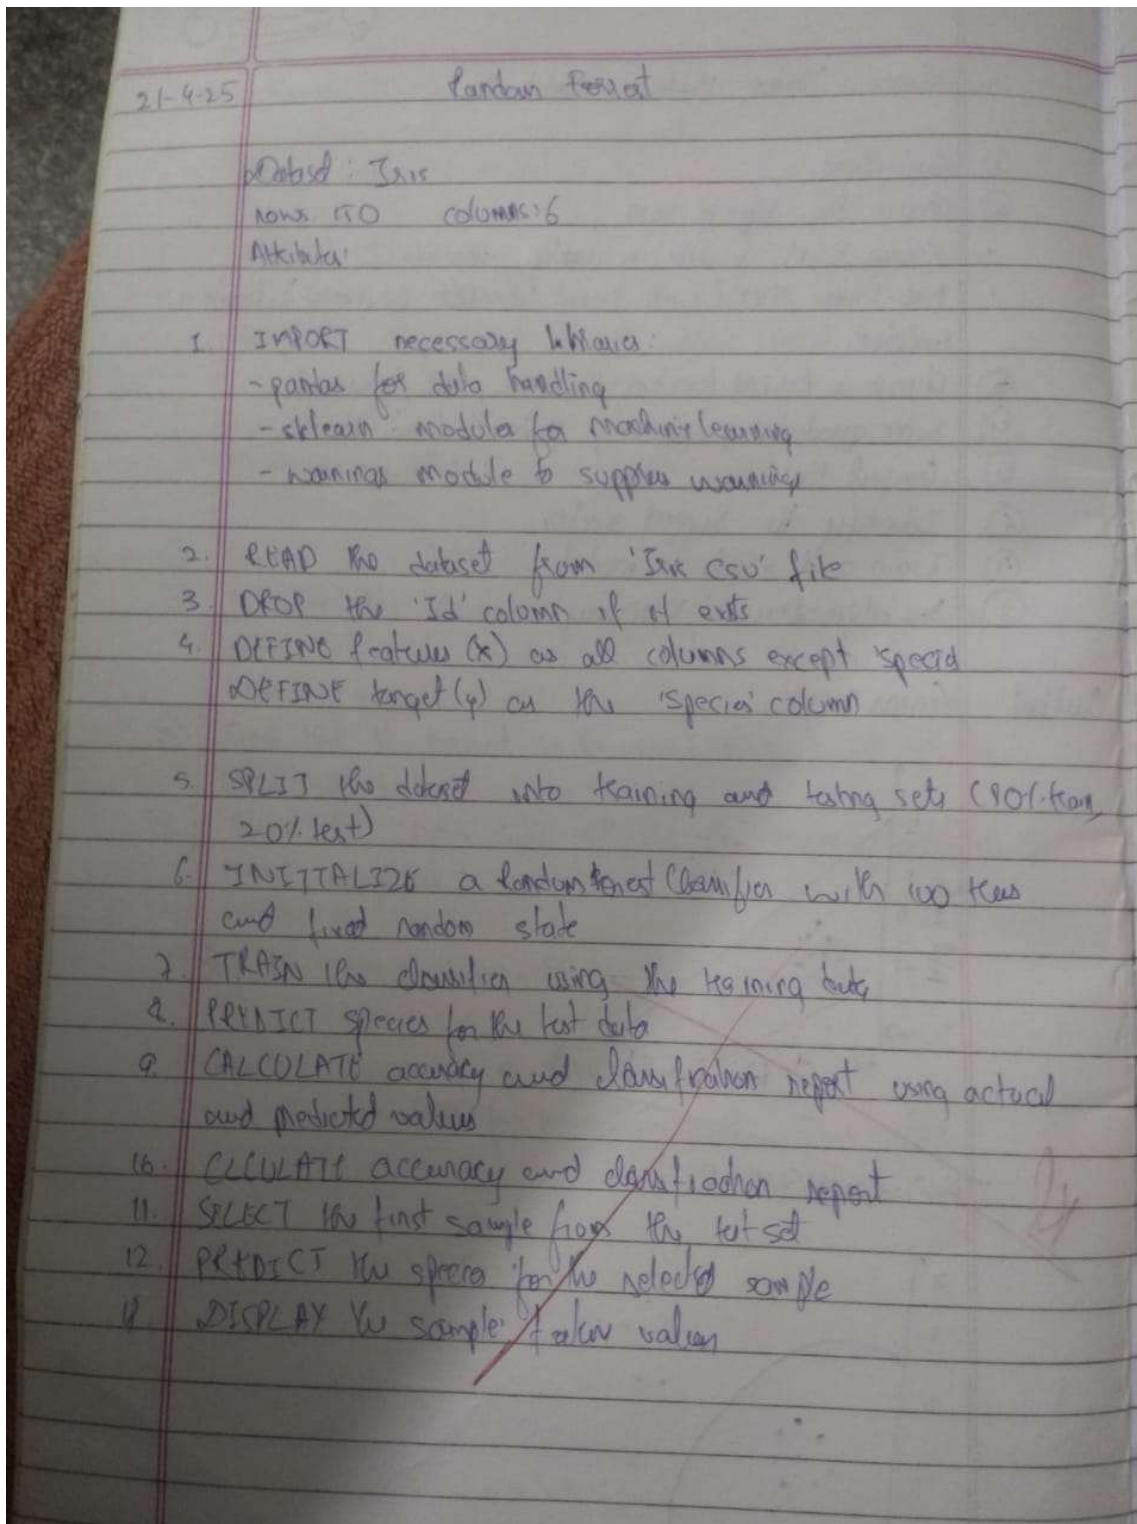 21-4-25 Random Forest
Dataset : Iris
rows 150 columns: 6
Attributes:
1. IMPORT necessary libraries:
- pandas for data handling
- sklearn modules for machine learning
- warnings module to suppress warnings
2. READ the dataset from 'Iris csv' file
3. DROP the 'Id' column if it exists
4. DEFINE features (x) as all columns except 'species'
DEFINE target (y) as the 'species' column
5. SPLIT the dataset into training and testing sets (80% train,
20% test)
6. INITIALIZE a Random Forest Classifier with 100 trees
and fixed random state
7. TRAIN the classifier using the training data
8. PREDICT species for the test data
9. CALCULATE accuracy and classification report using actual
and predicted values
10. CLCULATE accuracy and classification report
11. SELECT the first sample from the test set
12. PREDICT the species for the selected sample
13. DISPLAY the sample values